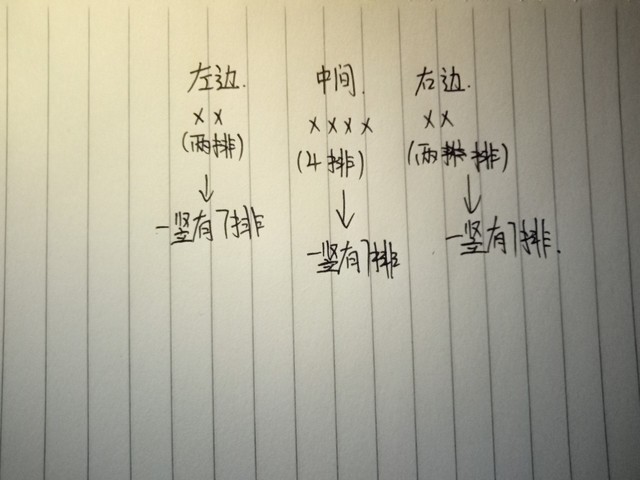 左边. 中间. 右边.
×× ×××× ××
(两排) (4排) (两排排)
↓ ↓ ↓
一竖有7排 一竖有7排 一竖有7排.